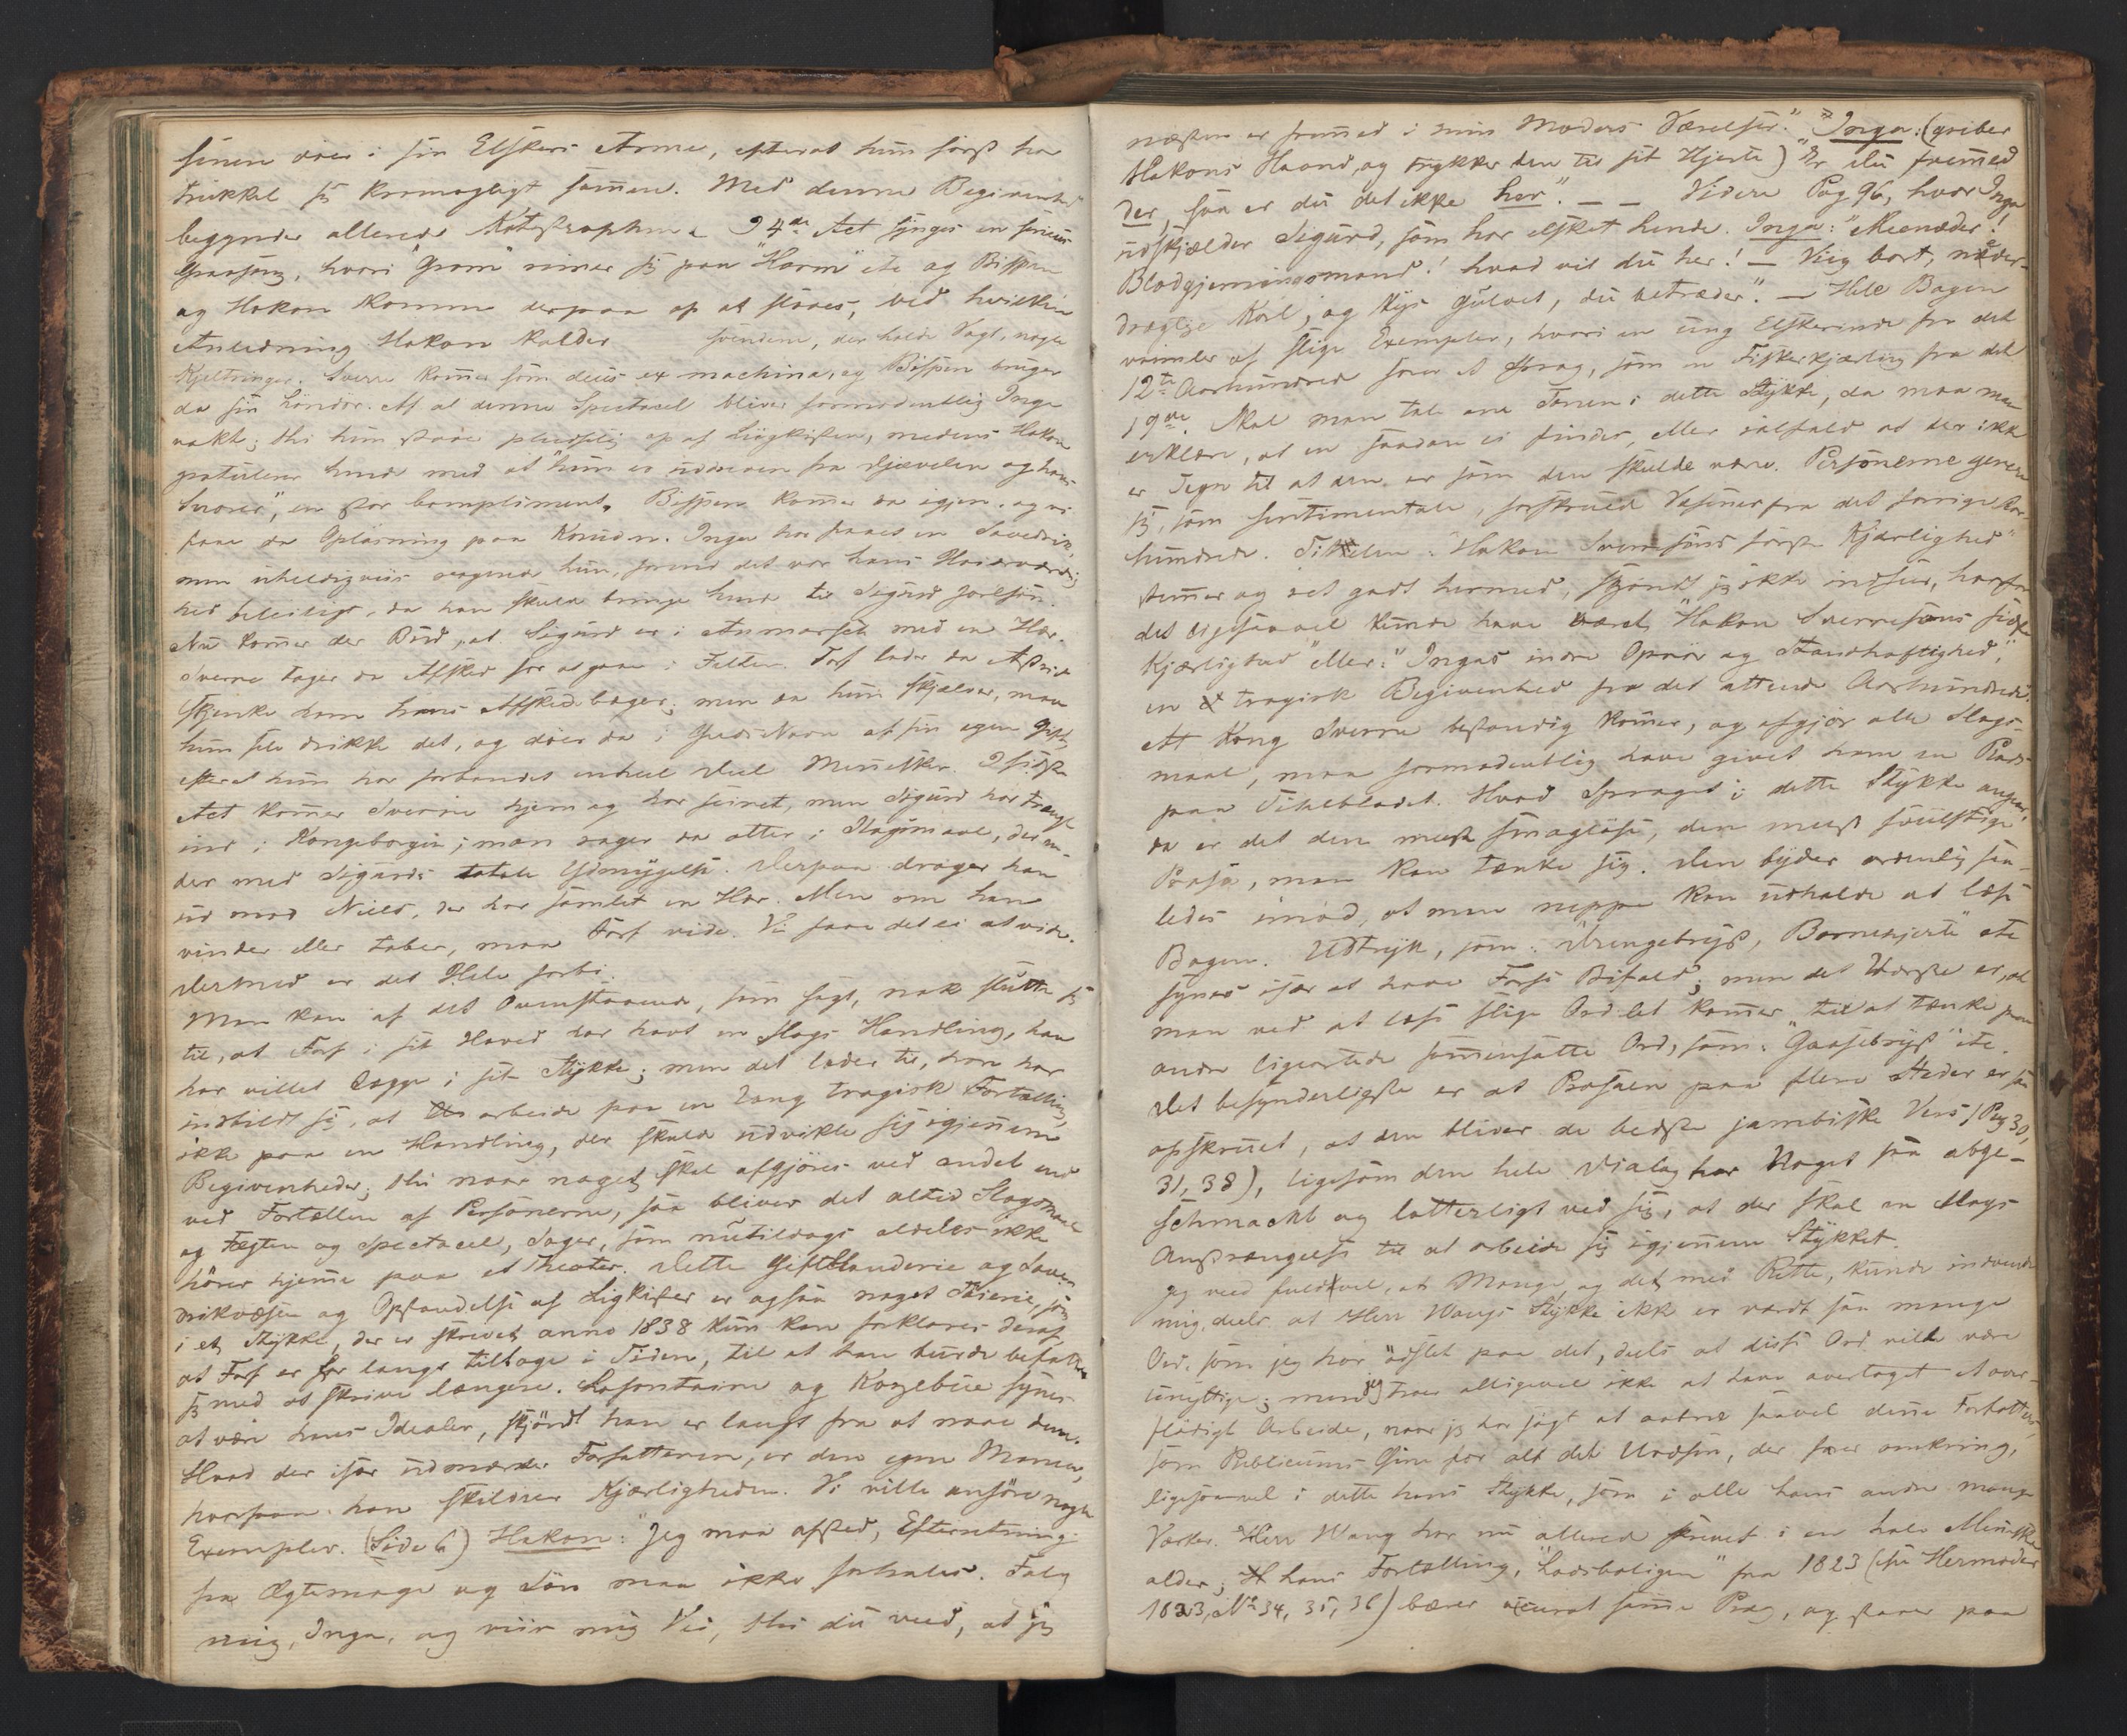 sinen döer i sin Elskers Arme, efterat hun först har
trukket sig krampagtigt sammen. Med denne Begivenhed
begynder allerede Katastrophen. I 4de Act synges en serieus
Gravsang, hvori "Gram" rimer sig paa "Harm" etc og Bispen
og Hakon komme derpaa op at slaaes, ved hvilken
Anledning Hakon kalder Svendene, der holde Vagt, nogle
Kjeltringer. Sverre kommer som deus ex machina, og Bispen bruger
da sin Tönder. Af al denne Spectacel bliver formodentlig Inga
vakt; thi hun staaer pludselig op af Liigkisten, medens Hakon
gratulerer hende med at "hun er udreven fra Djævelen og hans
Snarer", en stor Compliment. Bispen kommer da igjen, og vi
faae da Oplösning paa Knuden. Inga har faaet en Sovedrik,
men uheldigviis vaagnede hun, förend det var hans Höiærværdig-
hed beleiligt, da han skulde bringe hende til Sigurd Jarlsön.
Nu kommer der Bud, at Sigurd er i Anmarsch med en Hær.
Sverre tager da Afsked for at gaae i Felten. Forf lader da Astrid
skjenke ham hans Afskedsbæger; men da hun skjælver, maa
hun selv drikke det, og döer da i Guds Navn af sin egen Gift,
efterat hun har forbandet en heel Deel Mennesker. I sidste
Act kommer Sverre hjem og har seiret, men Sigurd har trængt
ind i Kongeborgen; man rager da atter i Slagsmaal, der en-
der med Sigurds totale Ydmygelse. Derpaa drager han
ud mod Niels, der har samlet en Hær. Men om han
vinder eller taber, maa Forf vide. Vi faae det ei at vide.
Dermed er det Hele forbi.
Man kan af det Ovenstaaende, som sagt, nok slutte sig
til, at Forf i sit Hoved har havt en Slags Handling, han
har villet lægge i sit Stykke; men det lader til, han har
indbildt sig, at arbeide paa en lang tragisk Fortælling,
ikke paa en Handling, der skulde udvikle sig igjennem
Begivenheder; thi naar noget skal afgjöres ved andet end
ved Fortællen af Personerne, saa bliver det altid Slagsmaal
og Fægten og Spectacel, Sager, som nutildags aldeles ikke
hörer hjemme paa et Theater. Dette Giftblanderie og Sove-
drikvæsen og Opstandelse af Ligkister er ogsaa noget Töierie, som
i et Stykke, der er skrevet anno 1838 kun kan forklares deraf,
at Forf er for langt tilbage i Tiden, til at han burde befatte
sig med at skrive længere. Lafontaine og Kozebue synes
at være hans Idealer, skjöndt han er langt fra at naae dem.
Hvad der især udmærker Forfatteren, er den egne Maneer,
hvorpaa han skildrer Kjærligheden. Vi ville anföre nogle
Exempler. (Side 6) Hakon: "Jeg maa afsted, Efterretning
fra Ægtemage og Sön maa ikke forhales. Fölg
mig, Inga, og viis mig Vei, thi du veed, at jeg
næsten er fremmed i min Moders Værelser." "Inga: (griber
Hakons Haand, og trykker den til sit Hjerte) "Er du fremmed
der, saa er du det ikke her". — — Videre Pag 96, hvor Inga
udskjælder Sigurd, som har elsket hende. Inga: "Meeneder!
Blodgjerningsmand! hvad vil du her! — Viig bort, nider-
drægtige Karl; og kys Gulvet, du betræder". — Hele Bogen
vrimler af slige Exempler, hvori en ung Elskerinde fra det
12te Aarhundred förer et Sprog, som en Fiskerkjærling fra det
19de. Skal man tale om Tonen i dette Stykke, da maa man
erklære, at en saadan ei findes, eller ialfald at der ikke
er Tegn til at den er som den skulde være. Personerne genere
sig, som sentimentale, forskruede Væsener fra det forrige Aar-
hundrede. Titelen: "Hakon Sverresöns förste Kjærlighed"
stemmer og ret godt hermed, skjöndt jeg ikke indseer, hvorfor
det ligesaavel kunde have været "Hakon Sverresöns sidste
Kjærlighed" eller: "Ingas indre Oprör og Standhaftighed,"
en tragisk Begivenhed fra det attende Aarhundrede.
At Kong Sverre bestandig kommer, og afgjör alle Slags-
maal, maa formodentlig have givet ham en Plads
paa Titelbladet. Hvad Sproget i dette Stykke angaaer,
da er det den meest smaglöse, den meest svulstige
Prosa, man kan tænke sig. Den byder ordentlig saa-
ledes imod, at man neppe kan udholde at læse
Bogen. Udtryk, som: "Drengebryst, Barnehjerte" etc
synes især at have Forfs Bifald; men det Værste er, at
man ved at læse slige Ord let kommer til at tænke paa
andre ligeartede sammensatte Ord, som: "Gaasebryst" etc.
Det besynderligste er at Prosaen paa flere Steder er saa
opskruet, at den bliver de bedste jambiske Vers (Pag 30,
31, 38), ligesom den hele Dialog har Noget saa abge-
schmackt og latterligt ved sig, at der skal en Slags
Anstrængelse til at arbeide sig igjennem Stykket.
Jeg veed fuldtvel, at Mange, og det med Rette, kunde indvende
mig, deels at Herr Waugs Stykke ikke er værdt saa mange
Ord, som jeg har ödslet paa det, deels at disse Ord ville være
unyttige; men jeg troer alligevel ikke at have overtaget et over-
flödigt Arbeide, naar jeg har sögt at aabne saavel denne Forfatters
som Publicums Öine for alt det Uvæsen, der farer omkring,
ligesaavel i dette hans Stykke, som i alle hans andre mange
Værker. Herr Waug har nu allerede skrevet i en halv Menneske-
alder; hans Fortælling, "Lodsboligen" fra 1823 (see Hermoder
1823, No 34, 35, 36) bærer accurat samme Præg, og staaer paa